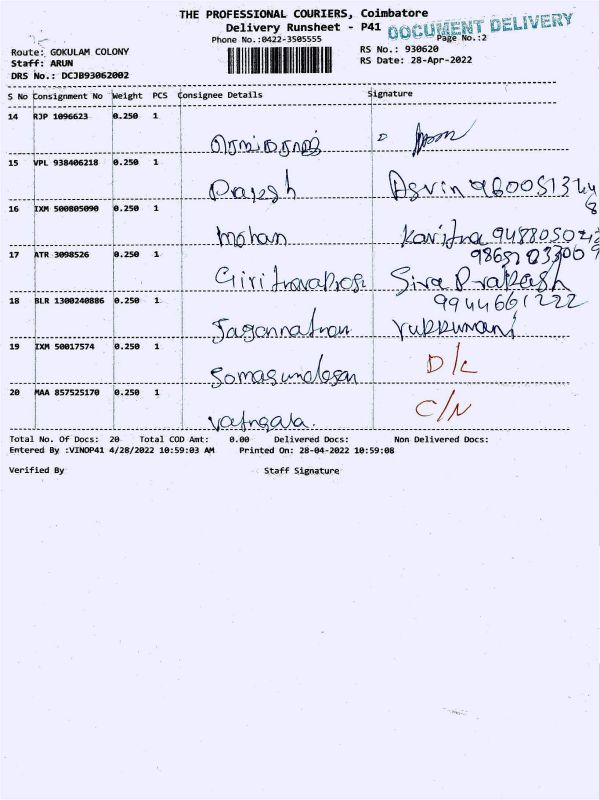 THE PROFESSIONAL COURIERS, Coimbatore
Delivery Runsheet - P41
DOCUMENT DELIVERY
Phone No.:0422-3505555
Page No.:2
Route: GOKULAM COLONY
RS No.: 930620
Staff: ARUN
RS Date: 28-Apr-2022
DRS No.: DCJB93062002
S No Consignment No Weight PCS Consignee Details Signature
14 RJP 1096623 0.250 1
15 VPL 938406218 0.250 1
Prajesh Asvin
16 IXM 500805090 0.250 1
Mohan Kavitha
17 ATR 3098526 0.250 1
Siva Prakash
18 BLR 1300240886 0.250 1
9944661222
Jagannathan rukkumani
19 IXM 50017574 0.250 1
Somasundaran D/L
20 MAA 857525170 0.250 1
C/N
Total No. Of Docs: 20 Total COD Amt: 0.00 Delivered Docs: Non Delivered Docs:
Entered By :VINOP41 4/28/2022 10:59:03 AM Printed On: 28-04-2022 10:59:08
Verified By Staff Signature